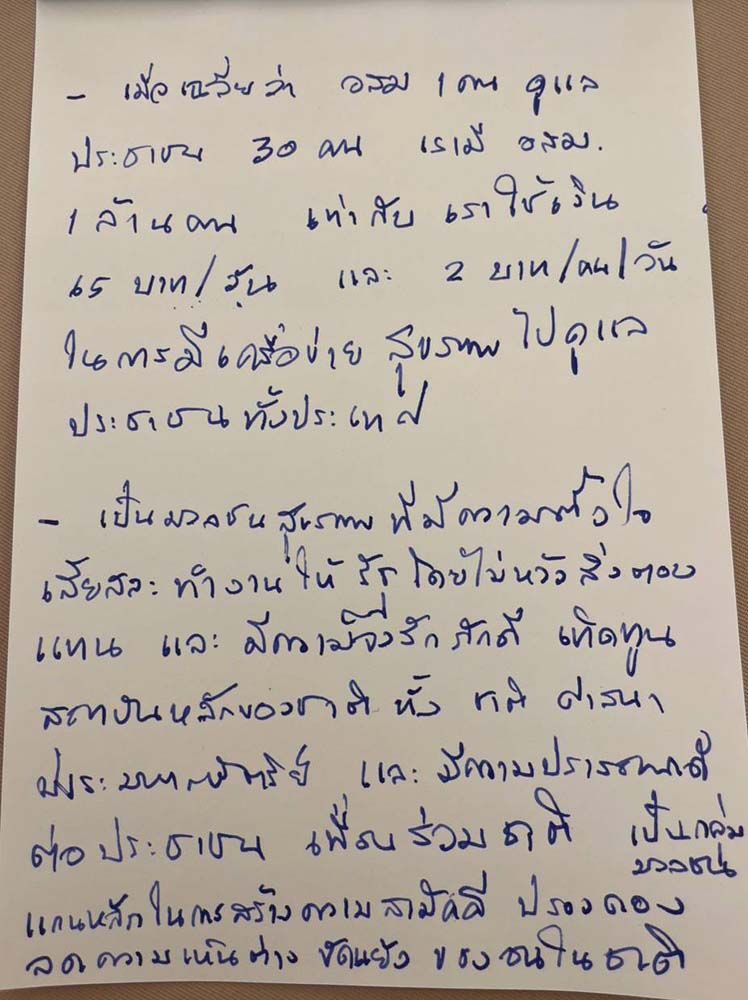 - เมื่อเฉลี่ยว่า อสม 1 คน ดูแล
ประชาชน 30 คน เรามี อสม.
1 ล้านคน เท่ากับ เราใช้เงิน
65 บาท/ และ 2 บาท/คน/วัน
ในการมีเครือข่าย สุขภาพ ไปดูแล
ประชาชนทั้งประเทศ
- เป็นมวลชนสุขภาพ ที่มีความตั้งใจ
เสียสละ ทำงานให้ รัฐ โดยไม่หวังสิ่งตอบ
แทน และ มีความจงรักภักดี เทิดทูน
สถาบันหลักของชาติ ทั้ง ชาติ ศาสนา
พระมหากษัตริย์ และ มีความปรารถนาดี
ต่อ ประชาชน เพื่อนร่วมชาติ เป็นกลุ่ม
มวลชน
แกนหลักในการสร้างความสามัคคี ปรองดอง
ลดความเห็นต่าง ขัดแย้ง ของคนในชาติ